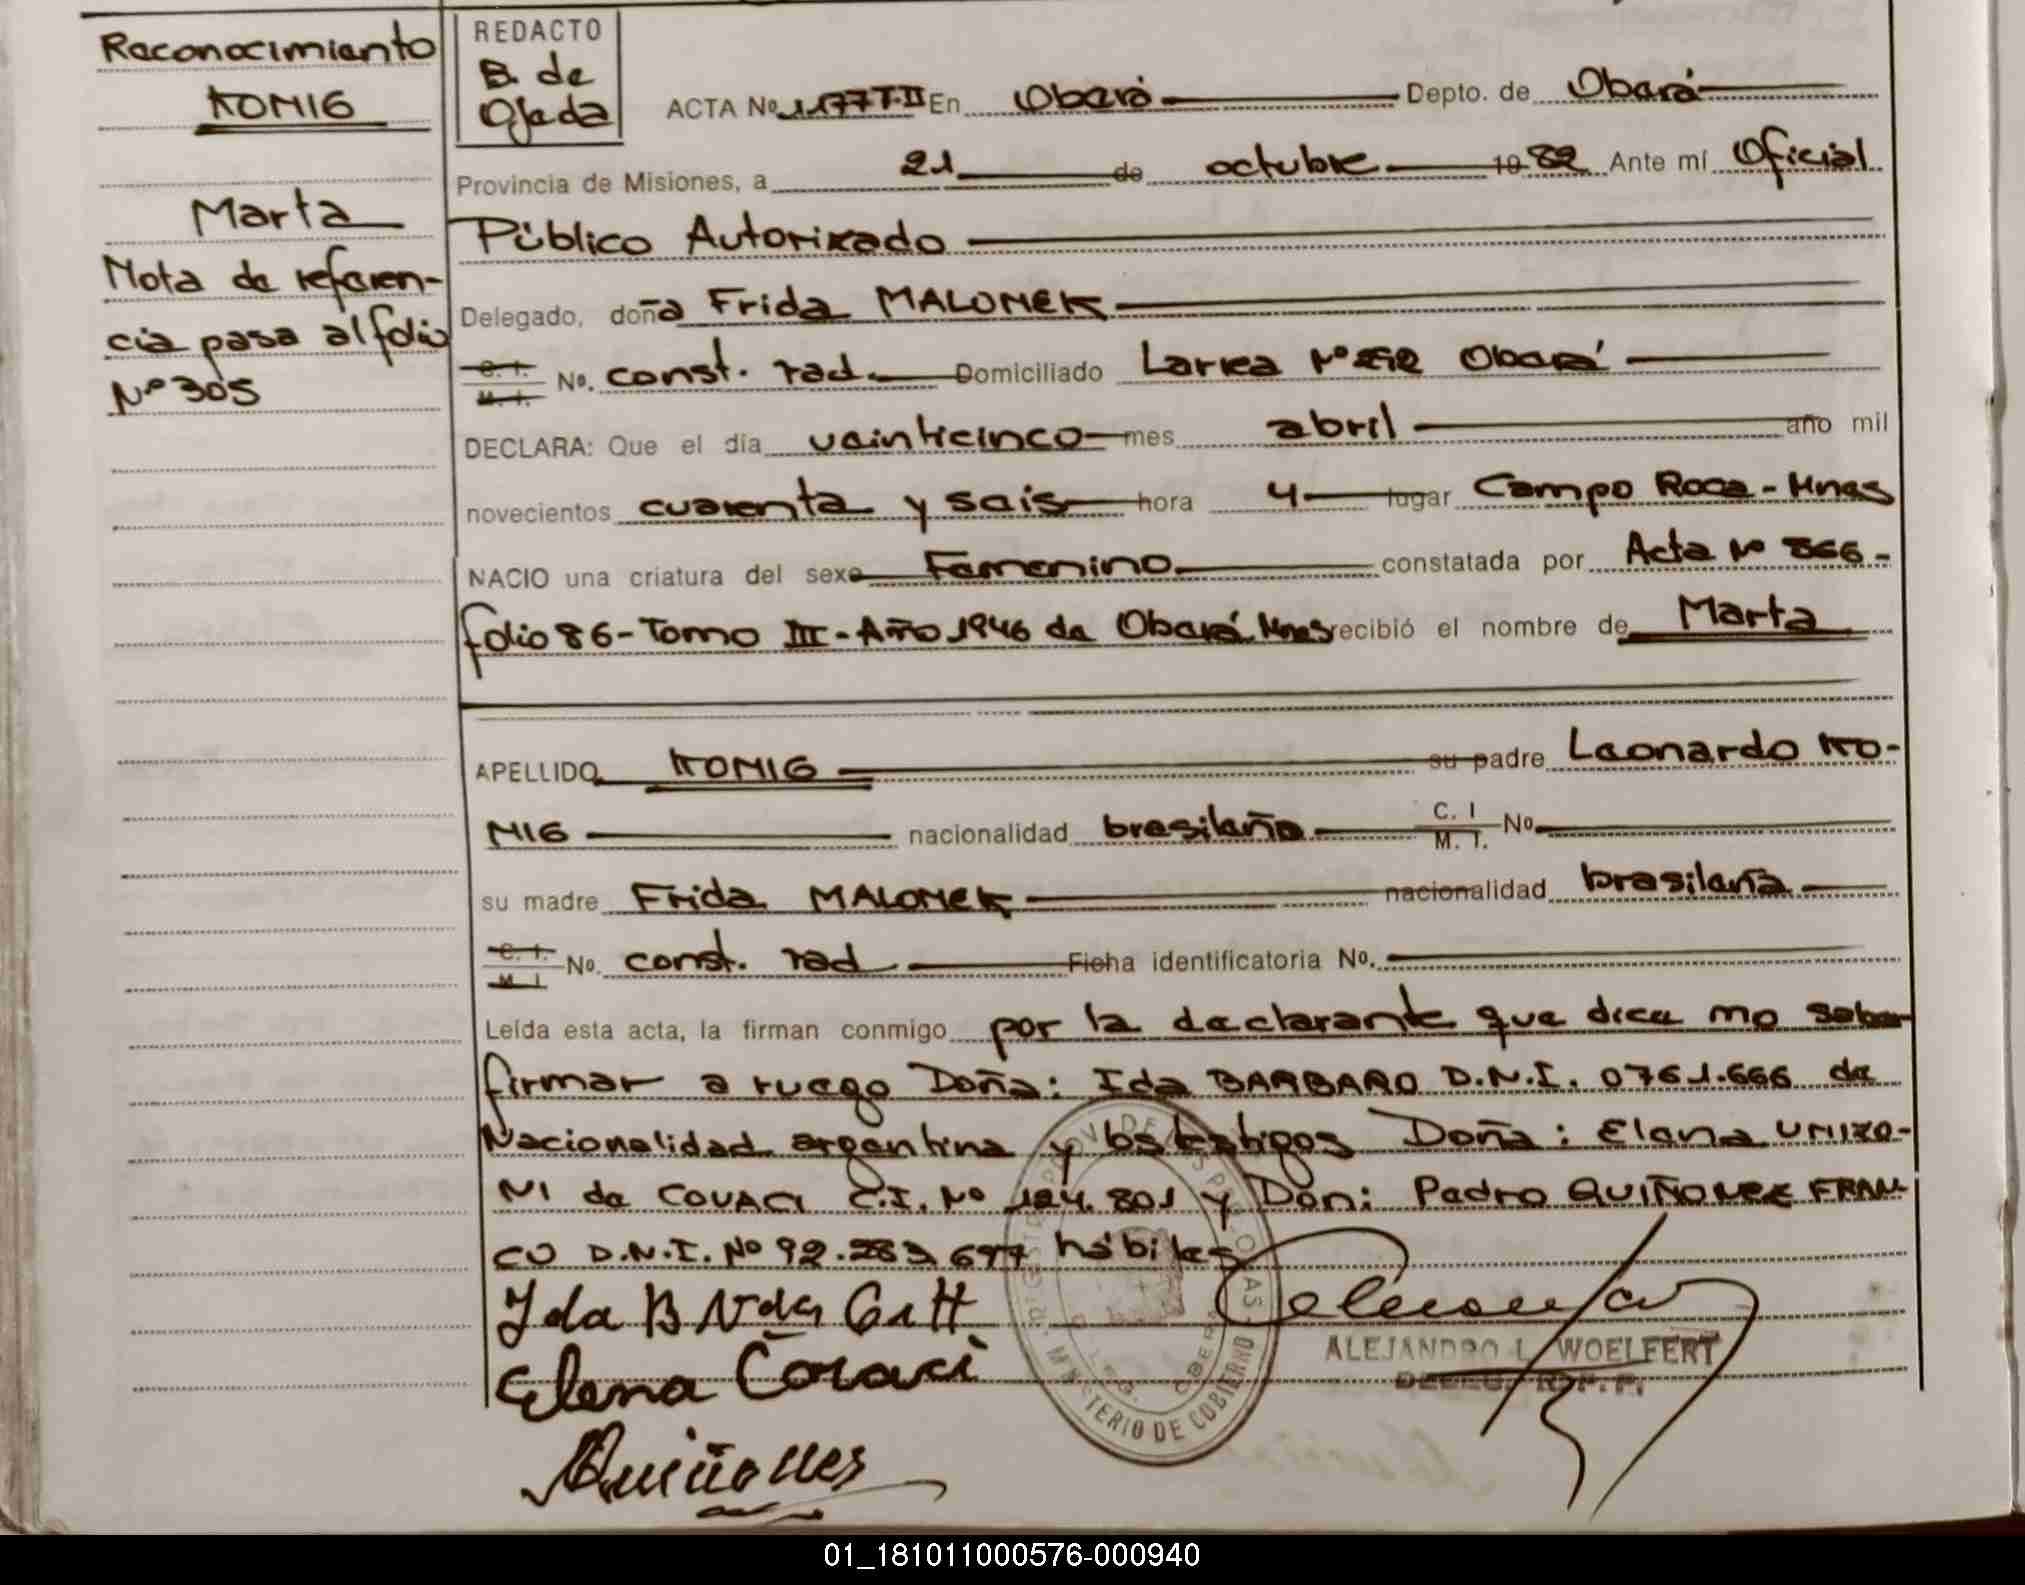 Reconocimiento
KONIG
Marta
Nota de referen-
cia pasa al folio
Nº 305
REDACTO
B. de
Ojeda
ACTA Nº 1.177 T-II En Oberá Depto. de Oberá
Provincia de Misiones, a 21 de octubre 1982 Ante mí Oficial
Público Autorizado
Delegado, doña Frida MALONEK
C. I. M. I. No. const. rad. Domiciliado Larrea Nº Oberá
DECLARA: Que el día veinticinco mes abril año mil
novecientos cuarenta y seis hora 4 lugar Campo Roca - Mnes
NACIO una criatura del sexo Femenino constatada por Acta Nº 866 -
folio 86 - Tomo III - Año 1946 de Oberá Mnes recibió el nombre de Marta
APELLIDO KONIG su padre Leonardo KO-
NIG nacionalidad brasileña C. I M. I. No
su madre Frida MALONEK nacionalidad brasileña
C. I. M. I No. const. rad Ficha identificatoria No.
Leída esta acta, la firman conmigo por la declarante que dice no saber
firmar a ruego Doña: Ida BARBARO D.N.I. 0761.666 de
Nacionalidad argentina y los testigos Doña: Elena UNIZO-
NI de COVACI C.I. Nº 124.801 y Don: Pedro QUIÑONEZ FRAN-
CO D.N.I. Nº 92.283.677 hábiles
Ida B Vda
Elena Covaci
Quiñones
MINISTERIO DE GOBIERNO
ALEJANDRO L. WOELFERT
DELEG. R. P. P.
01_181011000576-000940